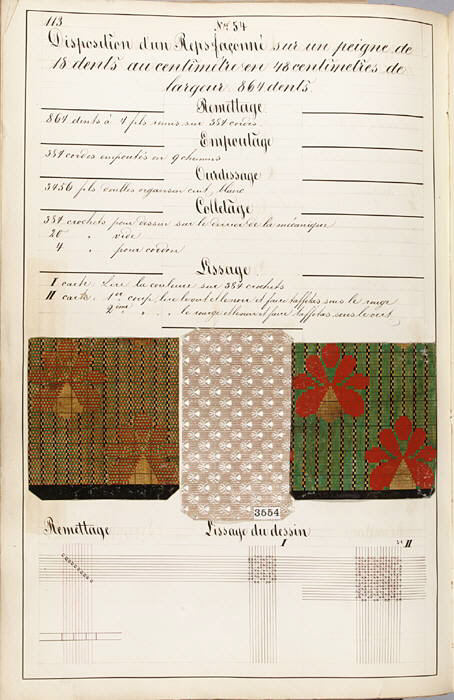 113
No. 54
Disposition d'un Reps façonné sur un peigne de
18 dents au centimètre en 48 centimètres de
largeur 864 dents.
Remettage
864 dents à 4 fils remis sur 384 cordes
Empoutage
384 cordes empoutés en 9 chemins
Ourdissage
3456 fils doubles organsin cuit, blanc
Colletage
384 crochets pour dessin sur le derrière de la mécanique
20 " vide
4 " pour cordon
Lissage
I carte. Lire la couleur sur 384 crochets
II carte. 1er coup, lire le vert et le noir et faire taffetas sous le rouge
2ème " " " le rouge et le noir et faire taffetas sous le vert
3554
Remettage
Lissage du dessin
I
II